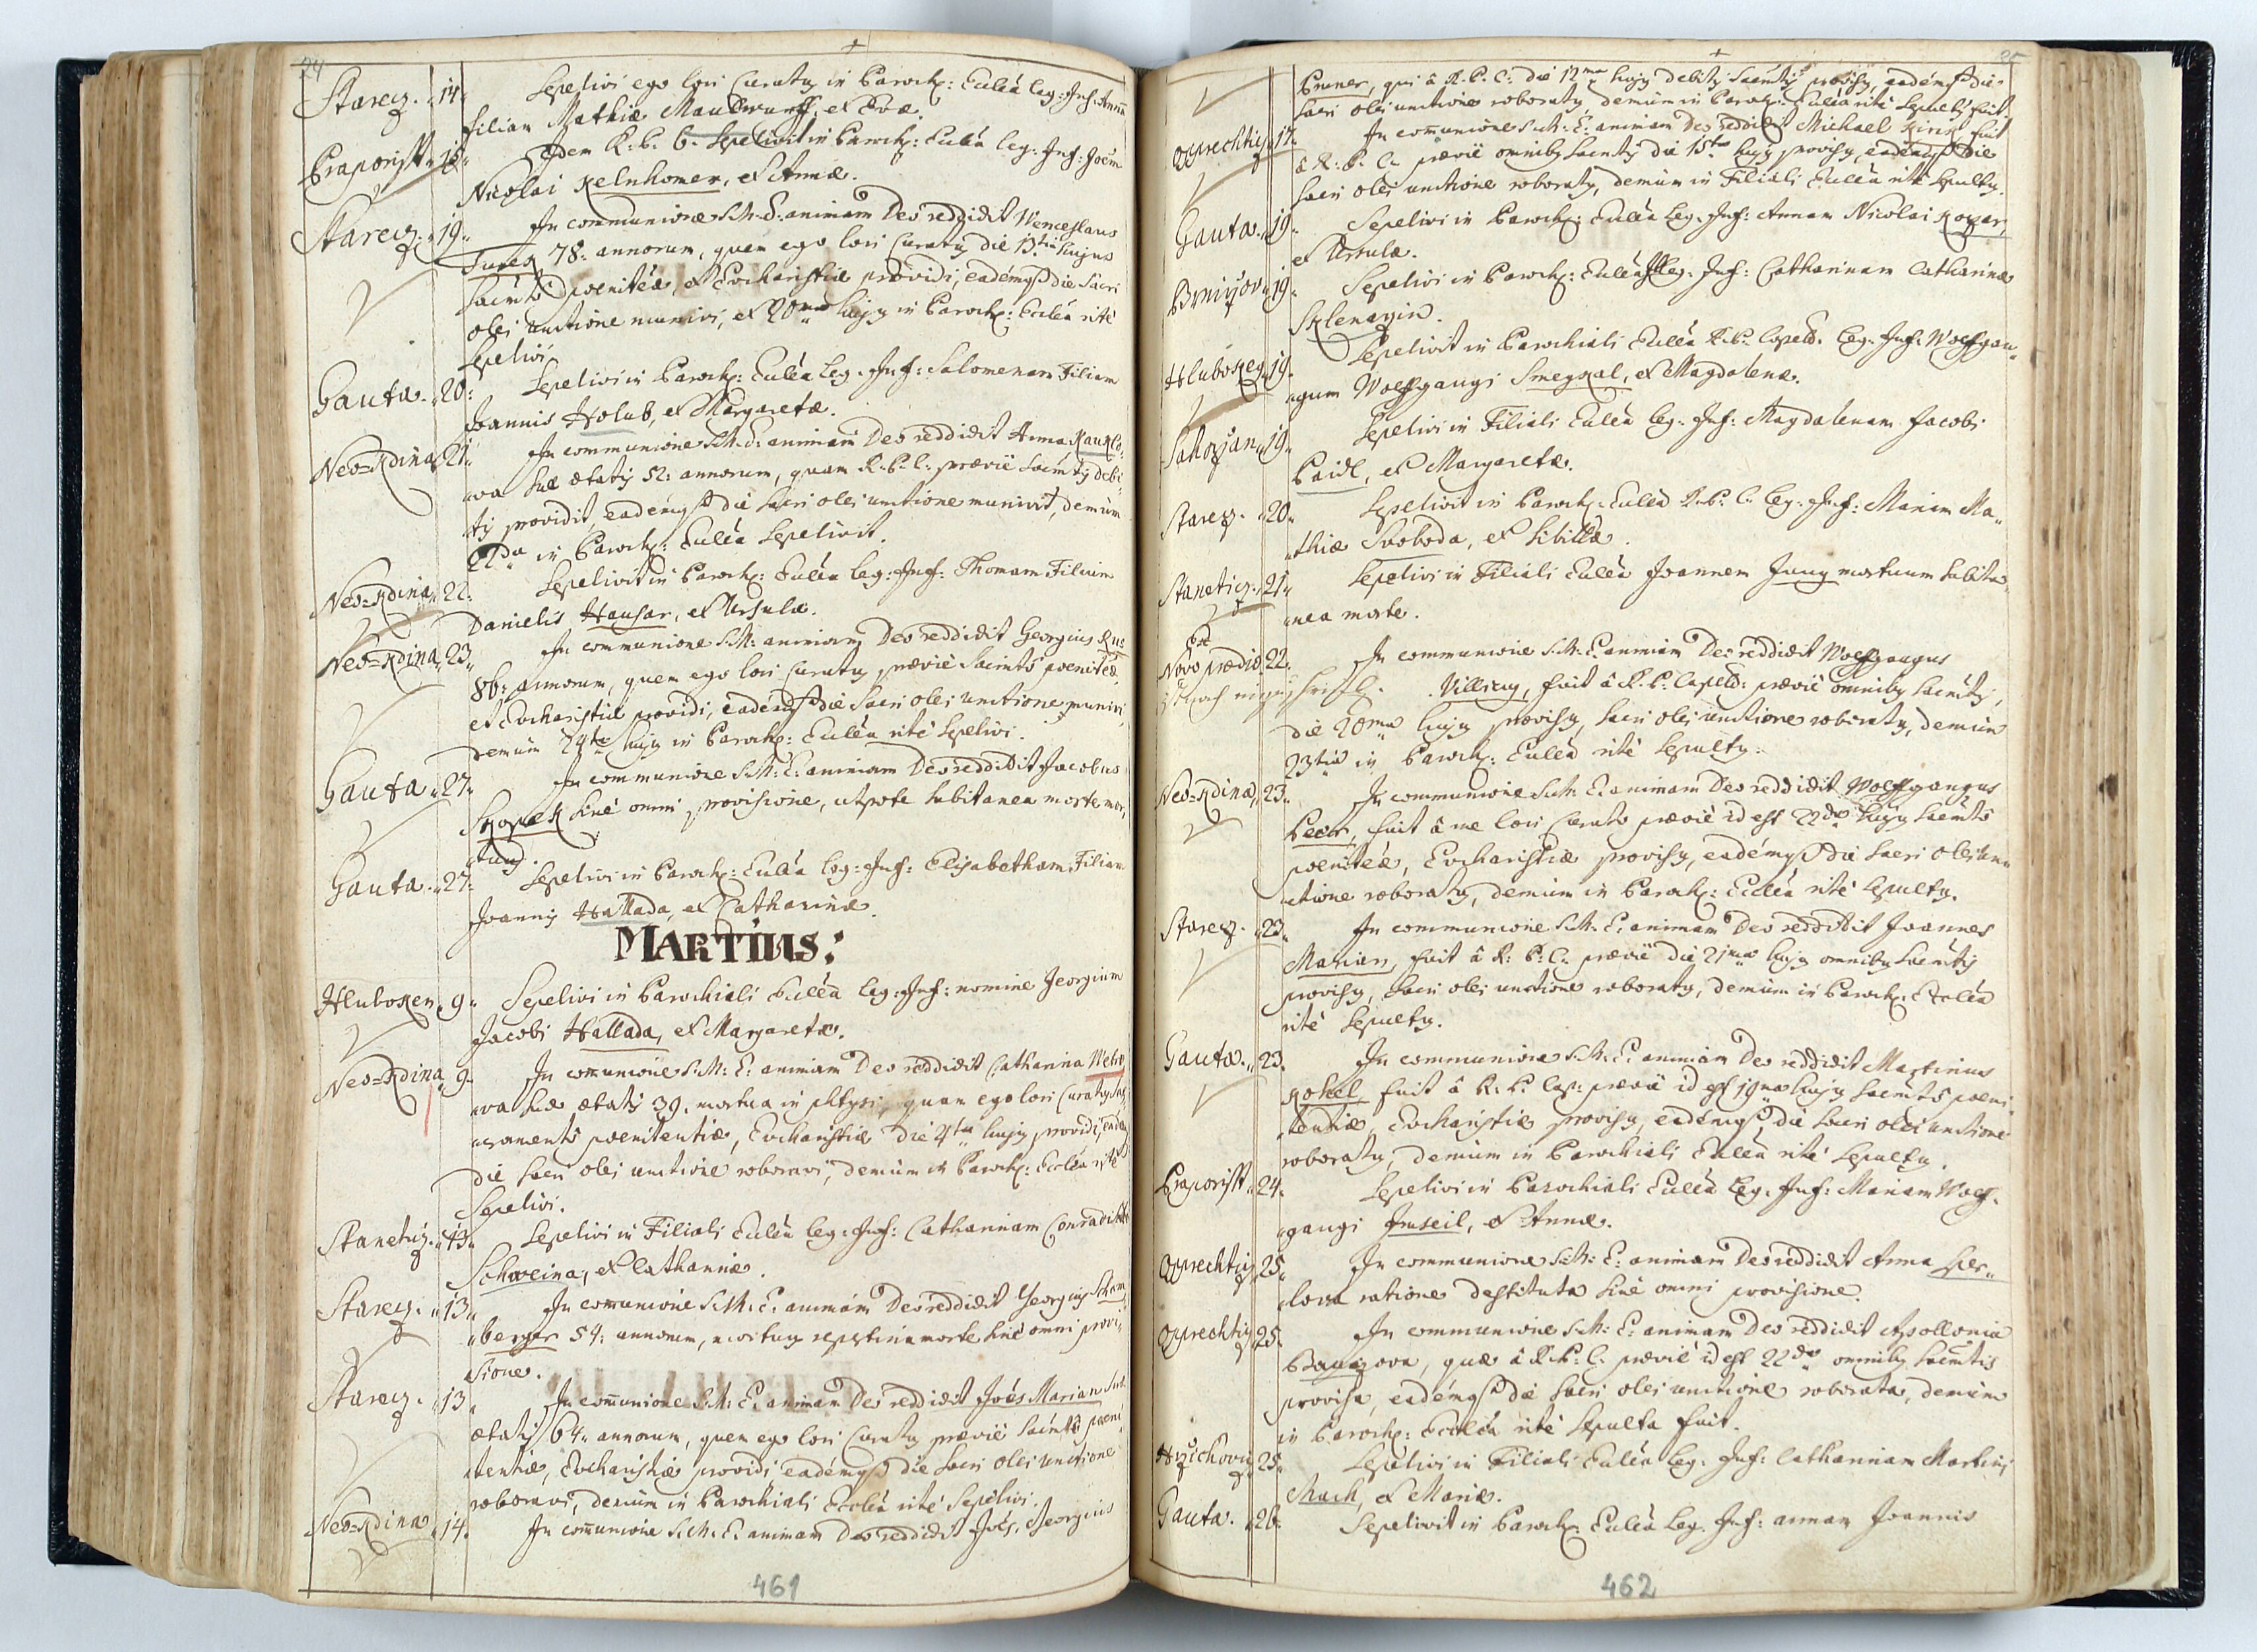 24
Starecz. 14. Sepelivi ego loci Curatus in Paroch: Ecclêa leg: Inf: Annam
filiam Mathiæ Maulwurff, et Evæ.
Praporist 18. Idem R. P. C. Sepelivit in Paroch: Ecclâ leg: Inf: Joem
Nicolai Kelnhomer, et Annæ.
Starecz. 19. In communione S: M: E: animam Deo reddidit Wenceslaus
78. annorum, quem ego loci Curatus die 13tia hujus
Sacrmto poenitêæ, et Eucharistiæ providi, eadémq die Sacri
olei unctione munivi, et 20ma hujus in Paroch: Ecclêa rité
Sepelivi.
Gauta. 20. Sepelivi in Paroch: Ecclêa Leg. Inf: Salomenam Filiam
Joannis Holub, et Margaretæ.
Neo=Kdina 21. In communione S. M. E. animam Deo reddidit Anna Kaukl
ova suæ ætatis 52. annorum, quam R. P. C. prævie Sacmtis debi
tis providit, eadémq die Sacri olei unctione munivit, demùm
22da in Paroch: Ecclêa Sepelivit.
Neo=Kdina 22. Sepelivit in Paroch: Ecclêa leg: Inf: Thomam Filium
Danielis Hausar, et Ursulæ.
Neo=Kdina 23. In communione S. M: animam Deo reddidit Georgius Kus
86. annorum, quem ego loci Curatus prævie Sacmto poenitêæ
et Eucharistiæ providi, eadémq die Sacri olei unctione munivi,
demùm 24ta hujus in Paroch: Ecclêa rité Sepelivi.
Gauta. 27. In communione S. M: E: animam Deo reddidit Jacobus
Skopek sine omni provisione, utpote subitanea morte mor,
tuus.
Gauta. 27. Sepelivi in Paroch: Ecclêa leg: Inf: Elisabetham Filiam
Joannis Hallada, et Catharinæ.
MARTIUS:
Hluboken 9. Sepelivi in Parochiali Ecclêa leg: Inf: nomine Georgium
Jacobi Hallada, et Margaretæ.
Neo=Kdina 9. In communione S. M: E: animam Deo reddidit Catharina Webro
va suæ ætatis 39. mortua in phtysi, quam ego loci Curatus Sa
cramento poenitentiæ, Eucharistiæ die 4ta hujus providi, eadéq
die Sacri olei unctione roboravi, demùm in Paroch: Ecclêa rité
Sepelivi.
Stanetitz. 13. Sepelivi in Filiali Ecclêa leg: Inf: Catharinam Conradi
Schweina, et Catharinæ.
Starecz. 13. In communione S. M. E. animam Deo reddidit Georgius Scham
berger 54. annorum, mortuus repentina morte sine omni provi
sione.
Starecz. 13. In comunione S. M: E: animam Deo reddidit Joês Marian suæ
ætatis 64. annorum, quem ego loci Curatus prævie Sacmto poeni
tentiæ, Eucharistiæ providi eadémq die Sacri olei unctione
roboravi, demùm in Parochiali Ecclêa rité Sepelivi.
Neo=Kdina 14. In comunione S. M. E. animam Deo reddidit Joês, Georgius
461
25
Pruner, qui â R. P. C: die 12ma hujus debitis Sacmtis provisus, eadémq die
Sacri olei unctione roboratus, demùm in Paroch: Ecclêa rité sepultus fuit.
Oprechtitz 17. In comunione S. M: E: animam Deo reddidit Michael fuit
â R: P. C. prævie omnibus Sacmtis die 15ta hujus provisus, eadémq die
Sacri olei unctione roboratus, demùm in Filiali Ecclêa rité Sepultus.
Gauta. 19. Sepelivi in Paroch: Ecclêa leg. Inf: Annam Nicolai Kozar,
et Ursulæ.
Brnirzov 19. Sepelivi in Paroch: Ecclêa Leg: Inf: Catharinam Catharinæ
Sklenarzin.
Hlubokeg 19. Sepelivit in Parochiali Ecclêa R. P. Capeld. leg. Inf: Wolfgan
gum Wolfgangi Smegkal, et Magdalenæ.
19. Sepelivi in Filiali Ecclêa leg: Inf: Magdalenam Jacobi
Paidl, et Margaretæ.
Starecz. 20. Sepelivit in Paroch: Ecclêa R. P. C. leg: Inf: Mariam Ma
thiæ Svoboda, et Sibillæ.
Stanetitz. 21. Sepelivi in Filiali Ecclêa Joannem Jung mortuum subita
nea morte.
Ex
Novo prædio 22. In communione S. M. E. animam Deo reddidit Wolfgangus
Villicus, fuit â R. P. Capeld: prævie omnibus Sacmtis,
die 20ma hujus provisus, Sacri olei unctione roboratus, demùm
23tia in Paroch: Ecclêa rité sepultus.
Neo=Kdina 23. In communione S. M. E. animam Deo reddidit Wolfgangus
fuit â me loci Curato prævie id est 22da hujus Sacmto
poenitêæ, Eucharistiæ provisus, eadémq die Sacri olei un
ctione roboratus, demùm in Paroch: Ecclêa rité sepultus.
Starecz. 23. In communione S. M. E. animam Deo reddidit Joannes
Marian, fuit â R: P: C. prævie die 21ma hujus omnibus Sacmtis
provisus, Sacri olei unctione roboratus, demùm in Paroch. Ecclêa
rité Sepultus.
Gauta. 23. In communione S. M. E. animam Deo reddidit Martinus
Kohel fuit â R: P: Cap: prævie id est 19na hujus Sacmto poeni
tentiæ, Eucharistiæ provisus, eadémq die Sacri olei unctione
roboratus, demùm in Parochiali Ecclêa rité Sepultus.
Praporist. 24. Sepelivi in Parochiali Ecclêa Leg. Inf: Mariam Wolf
gangi Imseil, et Annæ.
Oprechtitz 25. In communione S. M: E: animam Deo reddidit Anna
lova ratione destituta sine omni provisione.
Oprechtitz 25. In communione S. M: E: animam Deo reddidit Apollonia
ova, quæ â R. P: C. prævie id est 22da omnibus Sacmtis
provisa, eadémq die Sacri olei unctione roborata, demùm
in Paroch: Ecclêa rité Sepulta fuit.
25. Sepelivi in Filiali Ecclêa Leg. Inf: Catharinam Martini
Mach, et Mariæ.
Gauta. 26. Sepelivit in Paroch: Ecclêa Leg. Inf: annam Joannis
462